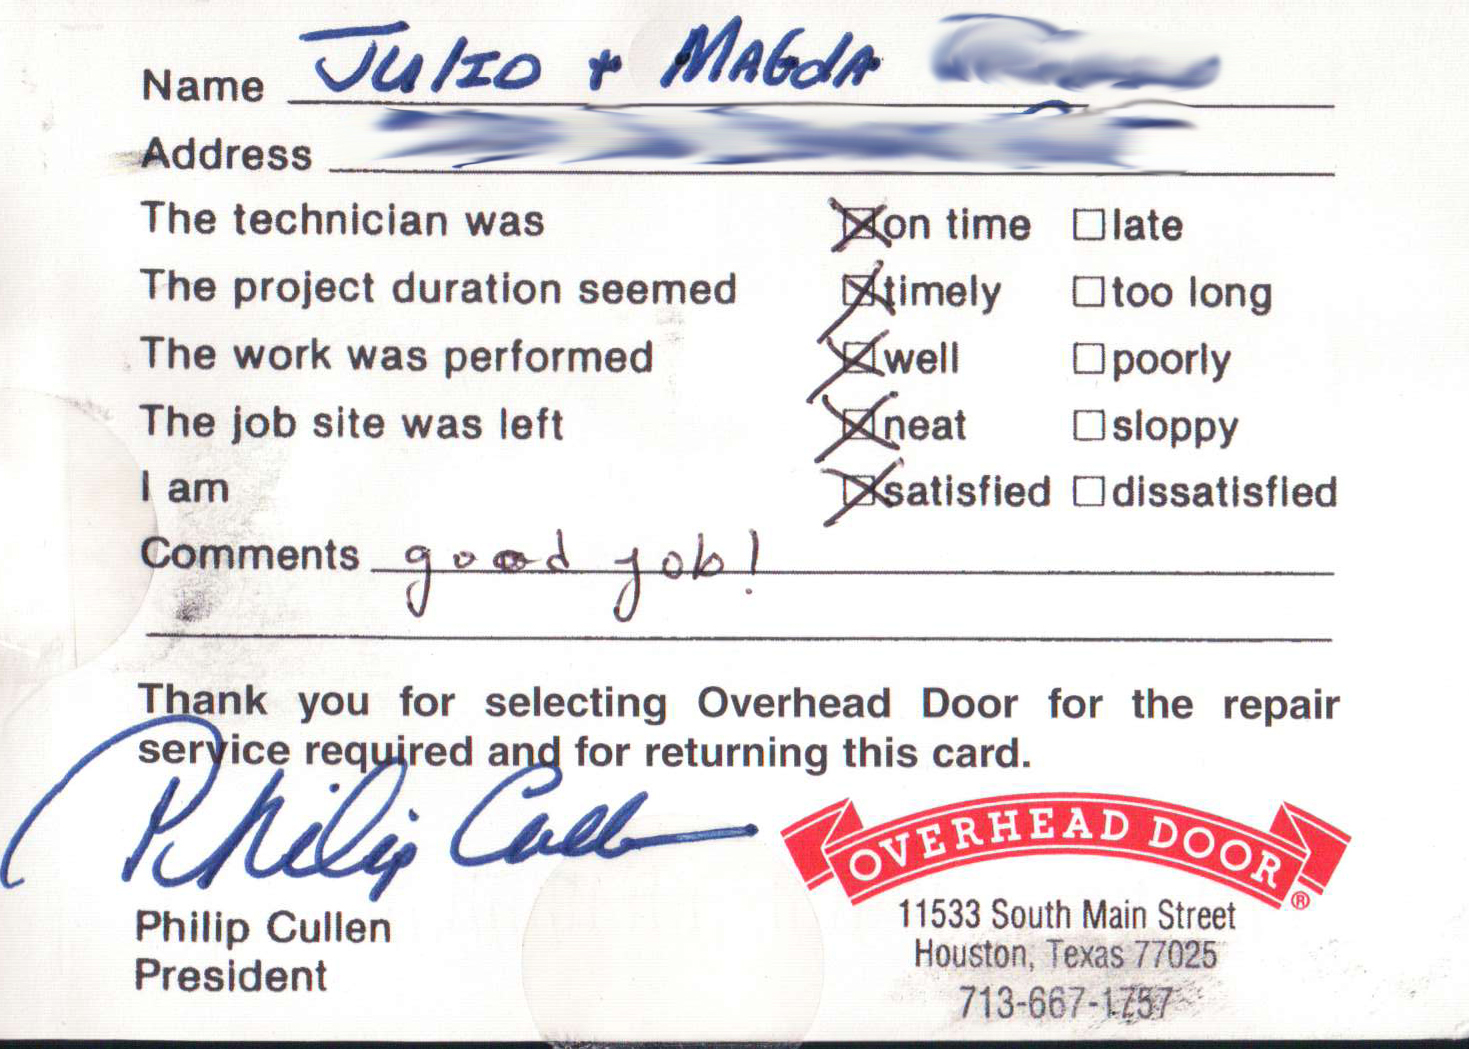 Name JULIO + MAGDA
Address
The technician was ☒on time ☐late
The project duration seemed ☒timely ☐too long
The work was performed ☒well ☐poorly
The job site was left ☒neat ☐sloppy
I am ☒satisfied ☐dissatisfied
Comments good job!
Thank you for selecting Overhead Door for the repair
service required and for returning this card.
Philip Cullen
Philip Cullen
President
OVERHEAD DOOR®
11533 South Main Street
Houston, Texas 77025
713-667-1757